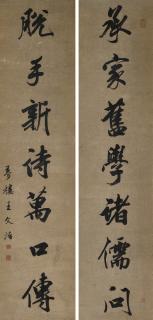 承家舊學諸儒問
脫手新詩萬口傳
夢樓王文治